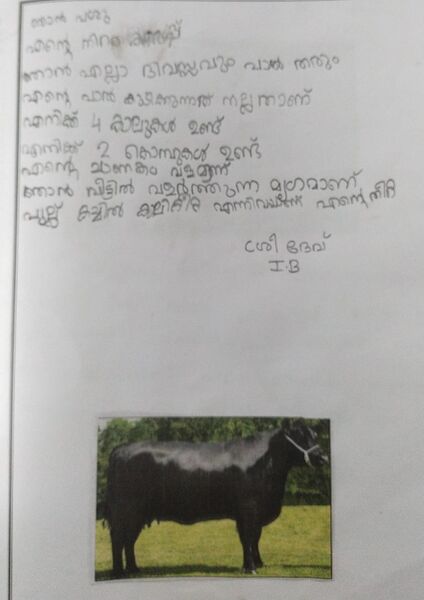 ഞാൻ പശു
എന്റെ നിറം കറുപ്പ്
ഞാൻ എല്ലാ ദിവസവും പാൽ തരും
എന്റെ പാൽ കുടിക്കുന്നത് നല്ലതാണ്
എനിക്ക് 4 കാലുകൾ ഉണ്ട്
എനിക്ക് 2 കൊമ്പുകൾ ഉണ്ട്
എന്റെ ചാണകം വളമാണ്
ഞാൻ വീട്ടിൽ വളർത്തുന്ന മൃഗമാണ്
പുല്ല് കച്ചിൽ കാലിത്തീറ്റ എന്നിവയാണ് എന്റെ തീറ്റ
ശ്രീ ദേവ്
I.B